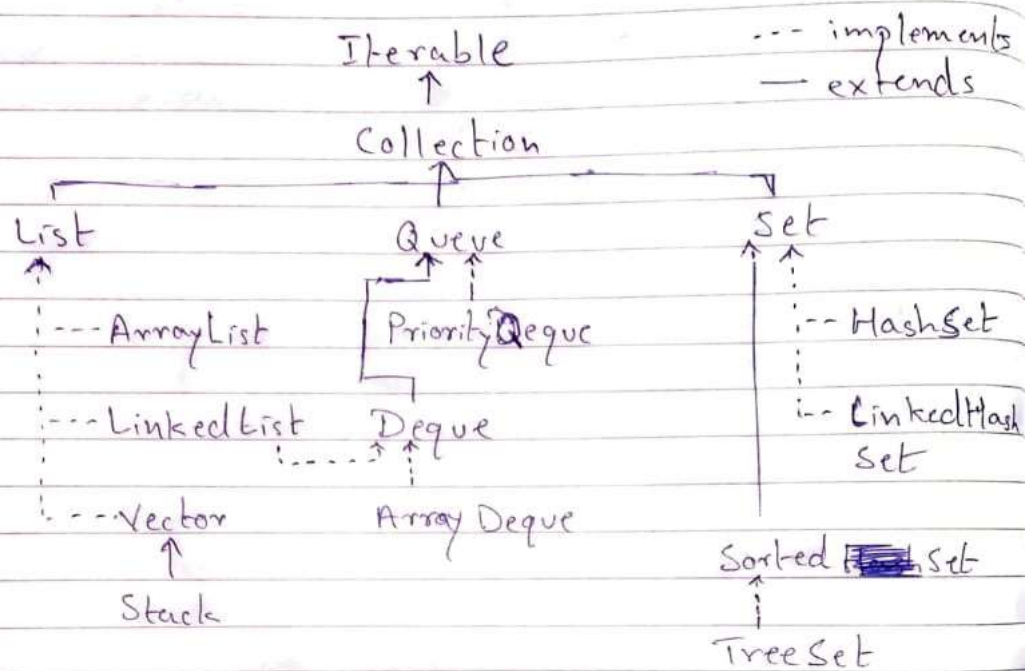 Iterable
--- implements
— extends
Collection
List
Queue
Set
ArrayList
PriorityQeque
HashSet
LinkedList
Deque
LinkedHash
Set
Vector
Array Deque
Sorted Set
Stack
TreeSet